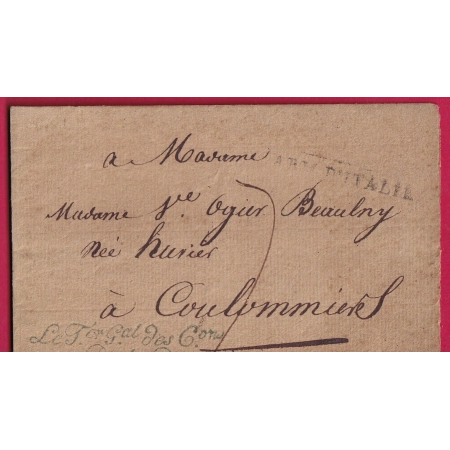 à Madame
ARM. D'ITALIE
Madame Ve. Ogier Beaulny
Née hurier
à Coulommiers
Le T.er G.al des C.ons